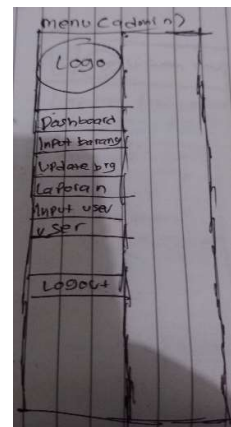 menu (admin)
Logo
Dashboard
Input barang
Update brg
Laporan
Input user
user
Logout